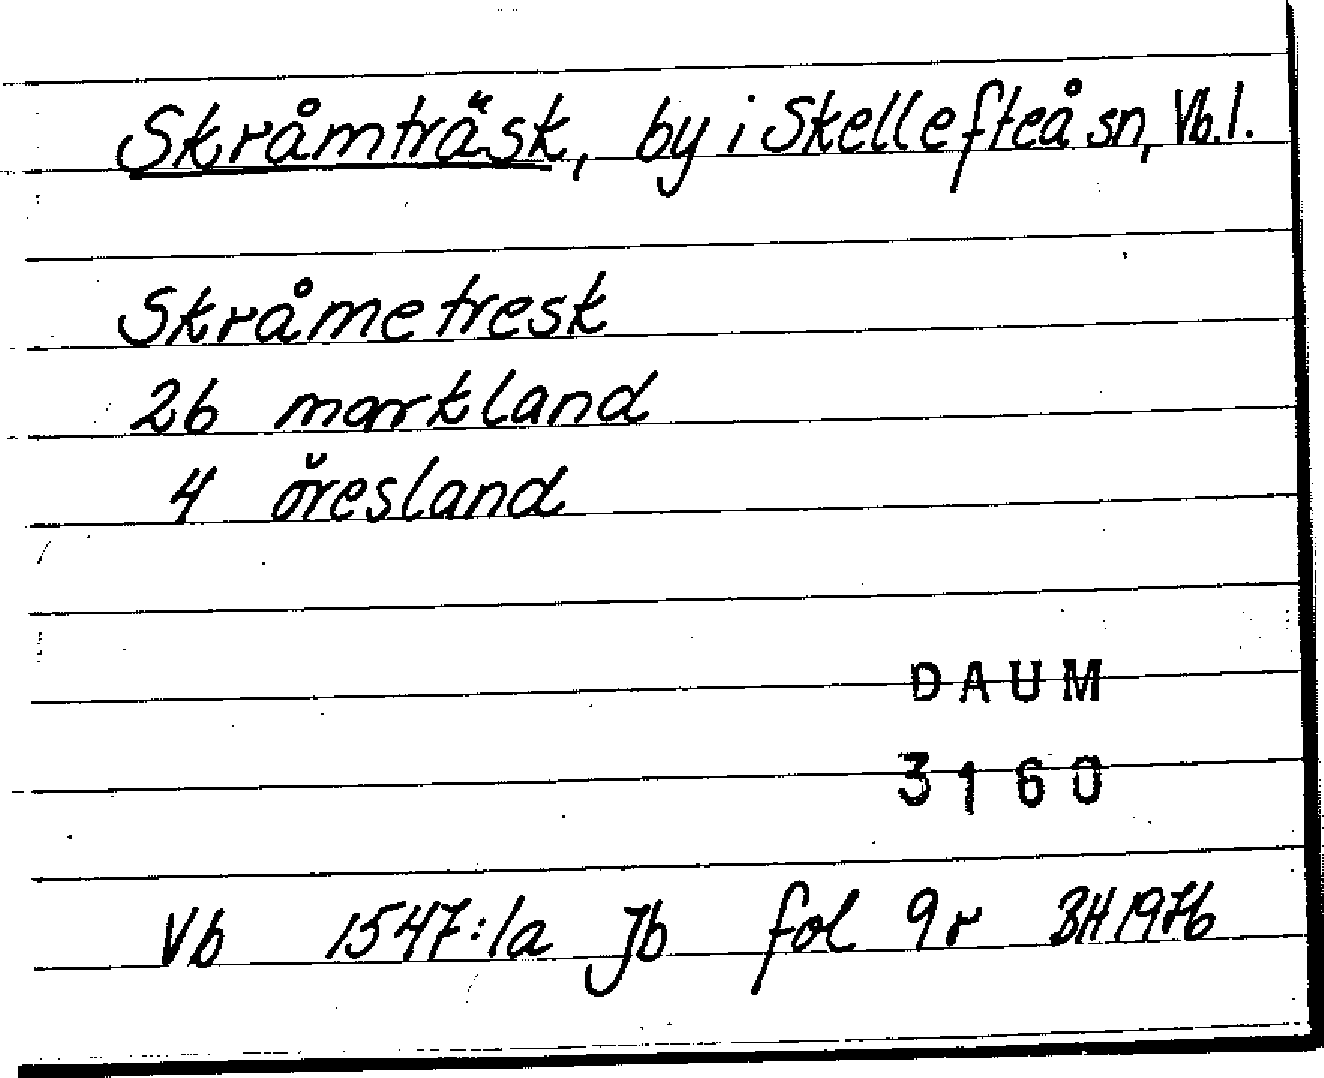 Skråmträsk, by i Skellefteå sn, Vb. l.
Skråmetresk
26 markland
4 öresland
DAUM
3160
Vb 1547:1a Jb fol 9r BH 1976